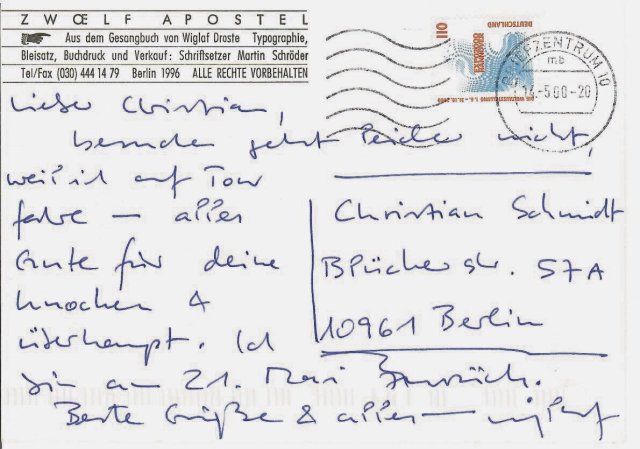 ZWŒLF APOSTEL
Aus dem Gesangbuch von Wiglaf Droste Typographie,
Bleisatz, Buchdruck und Verkauf: Schriftsetzer Martin Schröder
Tel/Fax (030) 444 14 79 Berlin 1996 ALLE RECHTE VORBEHALTEN
110
DEUTSCHLAND
EXPO2000
HANNOVER
DIE WELTAUSSTELLUNG 1.6.-31.10.2000
BRIEFZENTRUM 10
mb
14.-5.00-20
Lieber Christian,
besuchen geht leider nicht,
weil ich auf Tour
fahre — alles
Gute für deine
Knochen &
überhaupt. Ich
bin am 21. Mai zurück.
Beste Grüße & alles — Wiglaf
Christian Schmidt
Blücherstr. 57A
10961 Berlin